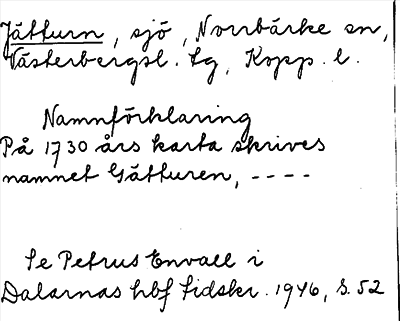 Jätturn, sjö, Norrbärke sn,
Västerbergsl. tg, Kopp. l.
Namnförklaring
På 1730 års karta skrives
namnet Gätturen, ----
Se Petrus Envall i
Dalarnas hbf tidskr. 1946, s. 52